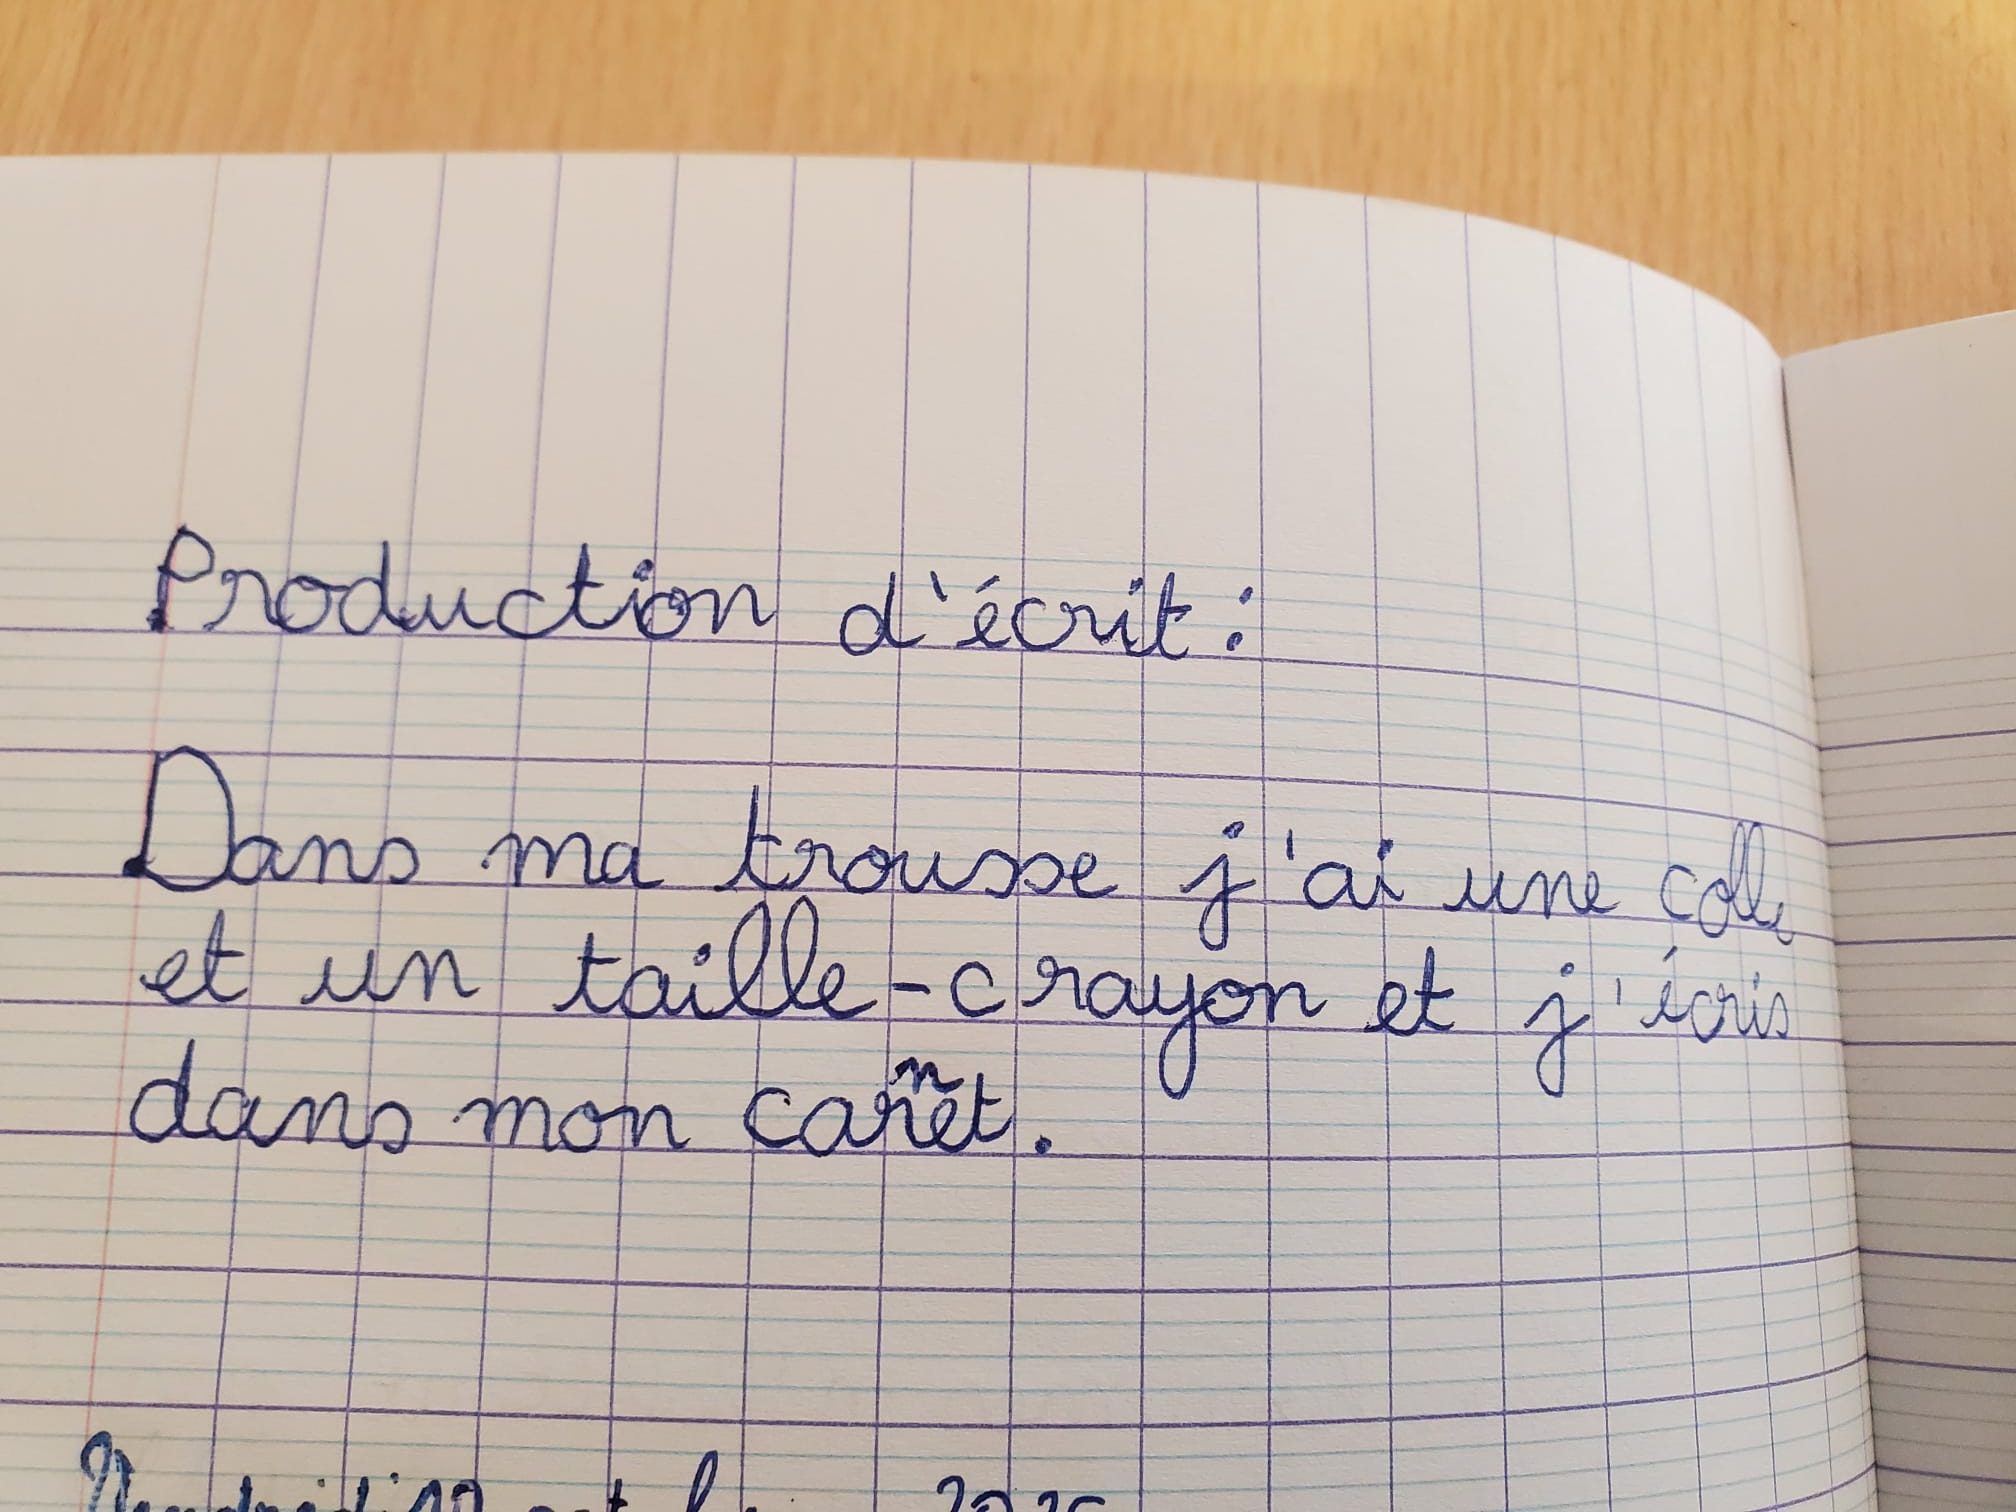 Production d'écrit :
Dans ma trousse j'ai une colle
et un taille-crayon et j'écris
dans mon carnet.
Vendredi